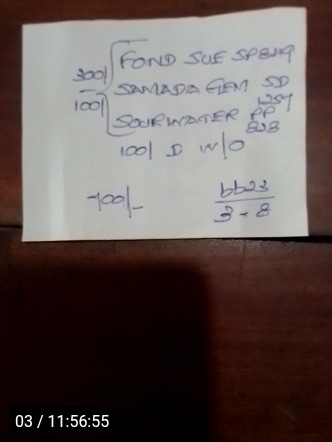 300/ FOND SUE SP8419
SAMADA GEM SD
100/ 1257
SOURWATER PP
828
100/ D W/O
700/-
bb23
3-8
03 / 11:56:55